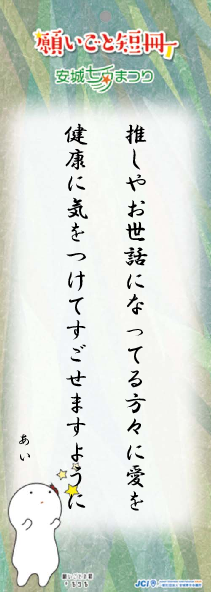 願いごと短冊
安城七夕まつり
推しやお世話になってる方々に愛を
健康に気をつけてすごせますように
あい
JCI